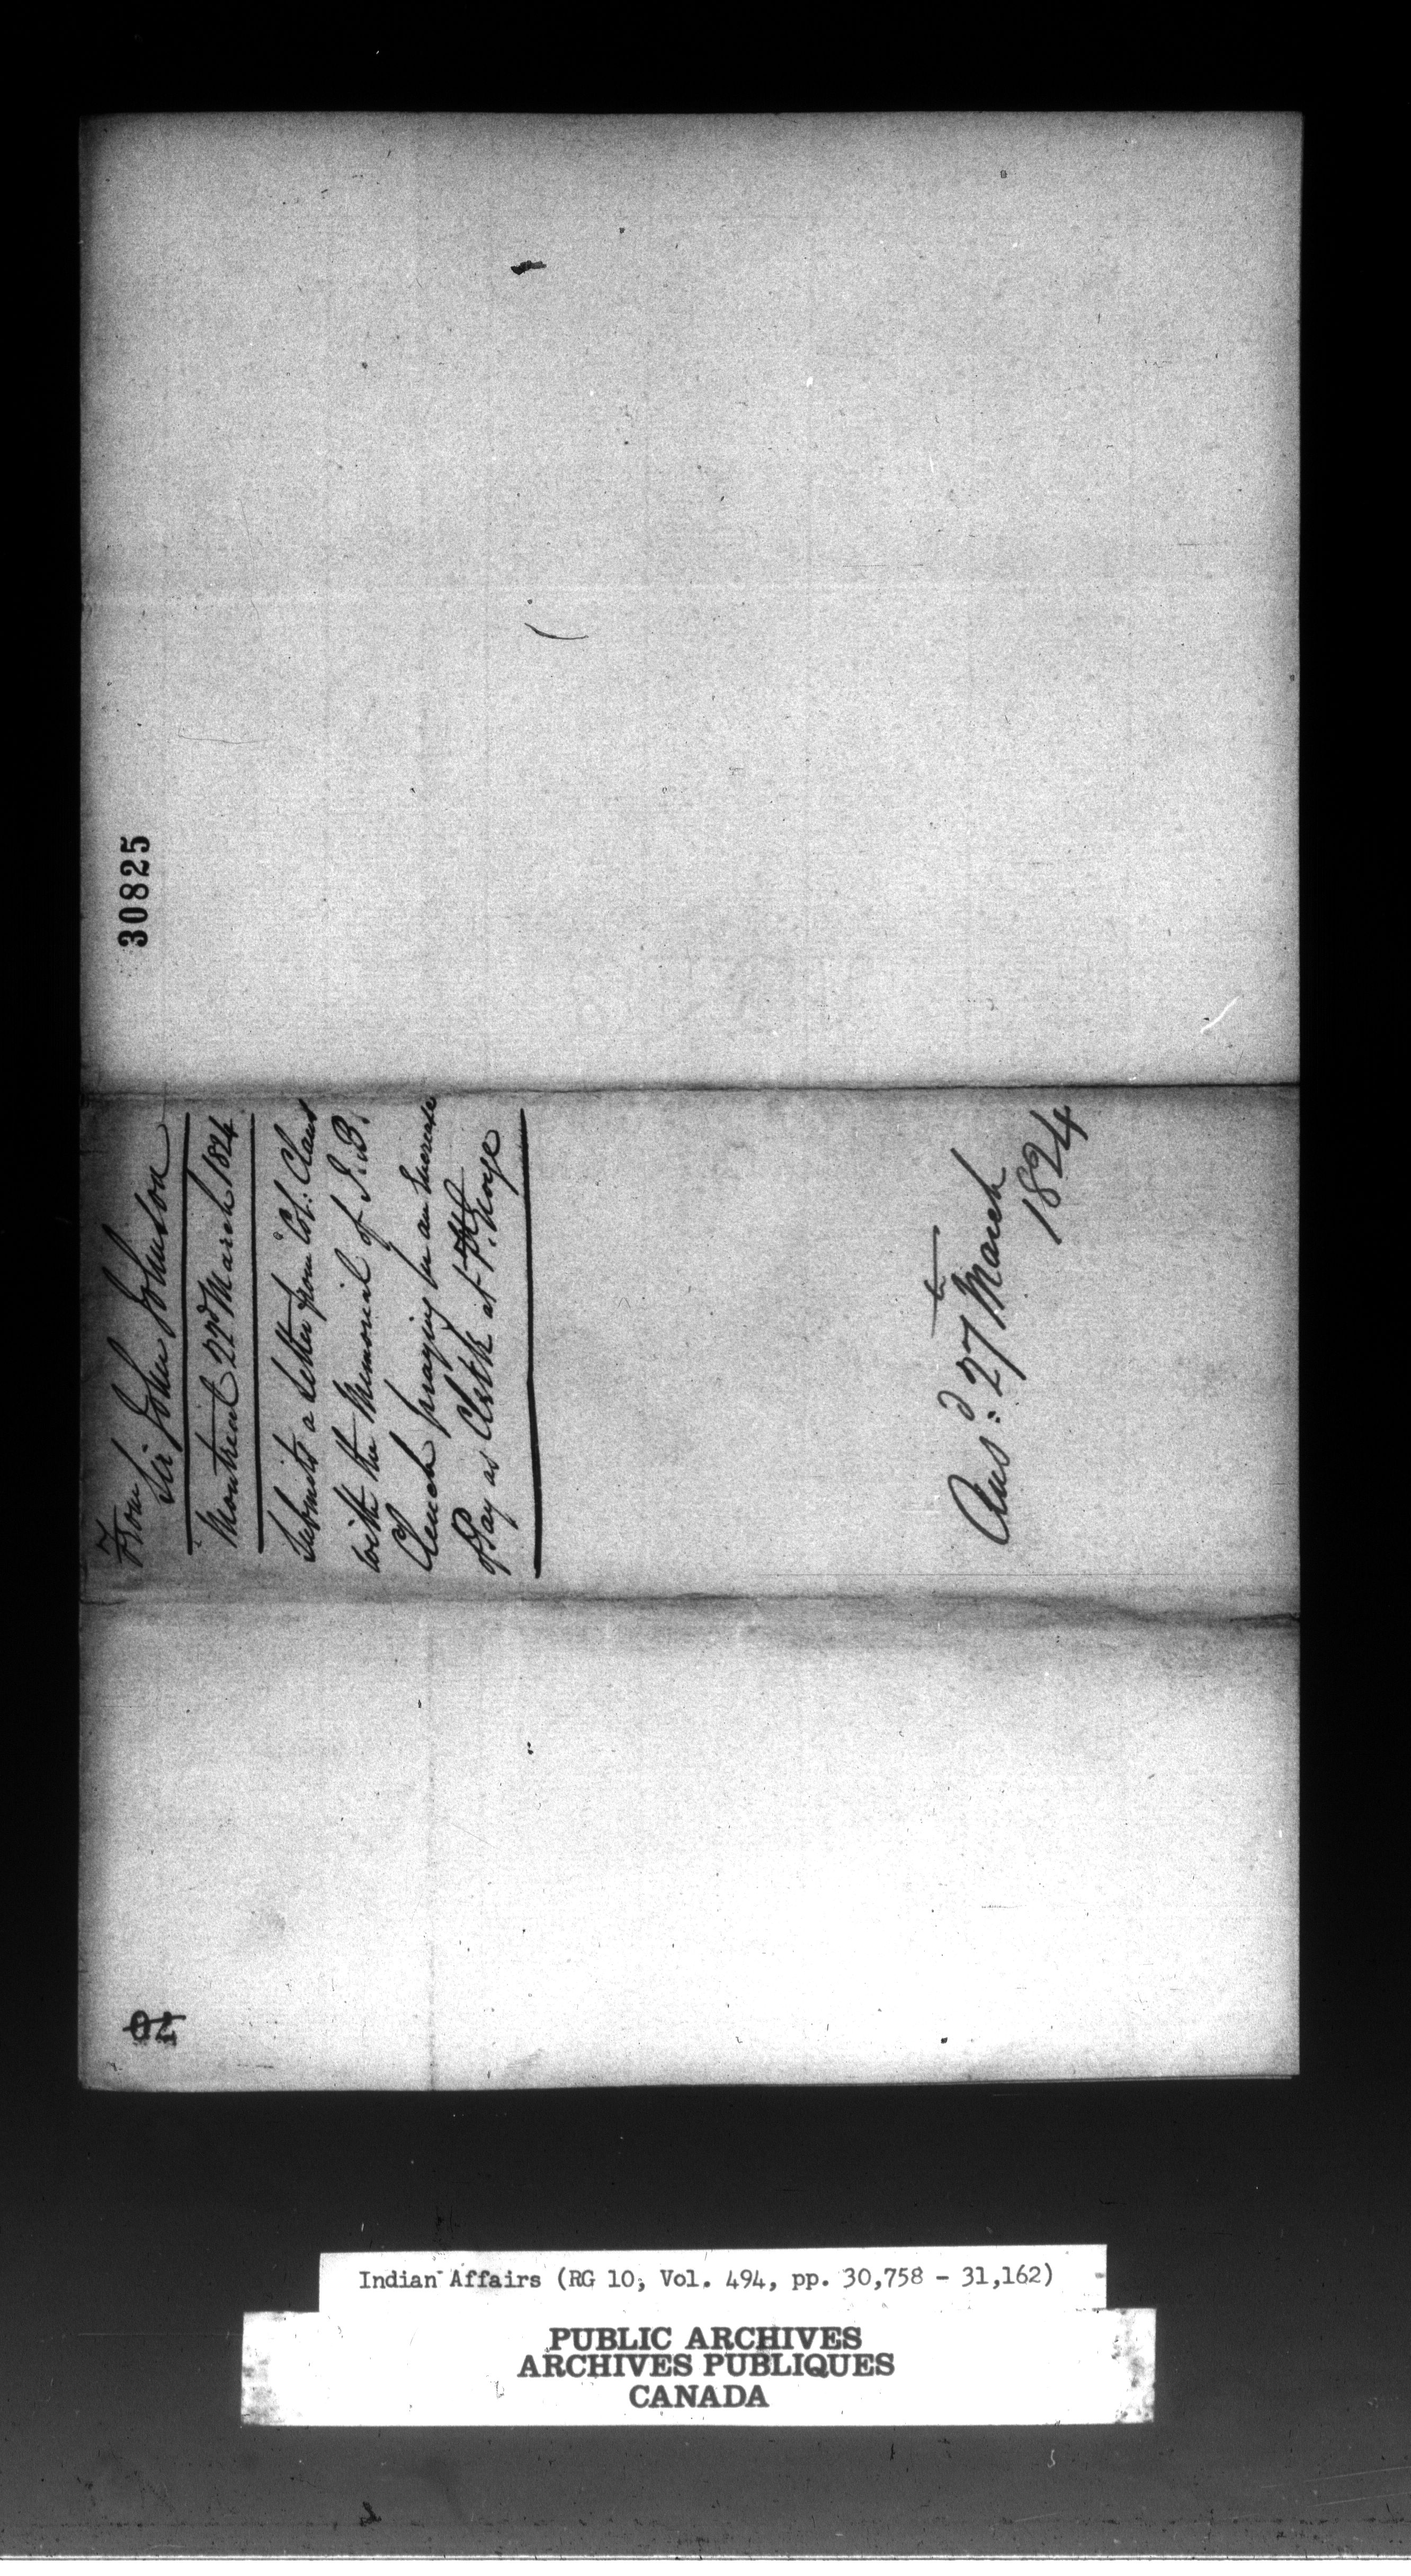 30825
From
Sir John Johnson
Montreal 22nd March 1824
Submits a letter from Col: Claus
with the Memorial of J. B.
Clench praying for an increase
of Pay as Clerk at Ft. George
Ansd: 27th March
1824
02
Indian Affairs (RG 10, Vol. 494, pp. 30,758 - 31,162)
PUBLIC ARCHIVES
ARCHIVES PUBLIQUES
CANADA